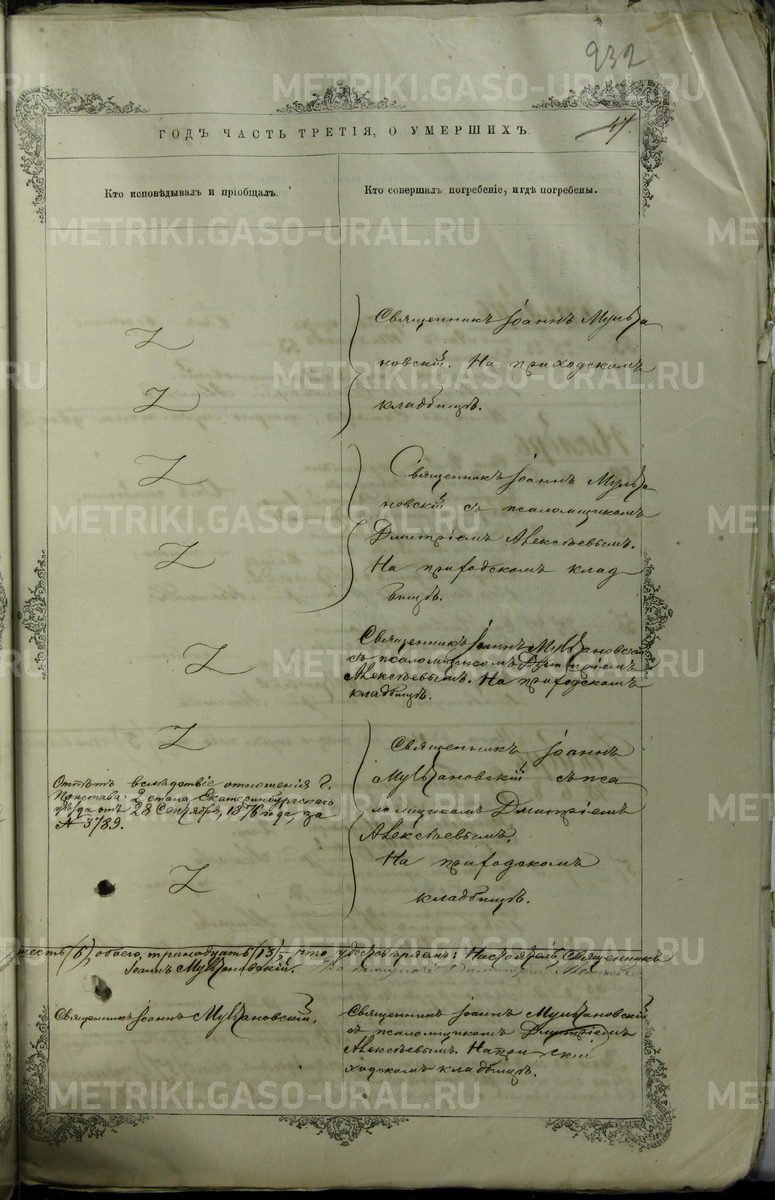 932
ГОДЪ ЧАСТЬ ТРЕТІЯ, О УМЕРШИХЪ.
17.
Кто исповѣдывалъ и пріобщалъ.
Кто совершалъ погребеніе, и гдѣ погребены.
Священникъ Іоаннъ Мульта
новскій. На приходскомъ
кладбищѣ.
Священникъ Іоаннъ Мульта
новскій съ псаломщикомъ
Дмитріемъ Алексѣевымъ.
На приходскомъ клад
бищѣ.
Священникъ Іоаннъ Мультановскій
съ псаломщикомъ Дмитріемъ
Алексѣевымъ. На приходскомъ
кладбищѣ.
Отпѣтъ вслѣдствіе отношенія Г.
Пристава 2 стана Екатеринбургскаго
уѣзда отъ 28 Сентября, 1876 года, за
№ 3789.
Священникъ Іоаннъ
Мультановскій съ пса
ломщикомъ Дмитріемъ
Алексѣевымъ.
На приходскомъ
кладбищѣ.
шесть (6), обоего тринадцать (13), что удостовѣряемъ: Настоятель, Священникъ
Іоаннъ Мультановскій.
Священникъ Іоаннъ Мультановскій.
Священникъ Іоаннъ Мультановскій
съ псаломщикомъ Дмитріемъ
Алексѣевымъ. На при
ходскомъ кладбищѣ.
METRIKI.GASO-URAL.RU